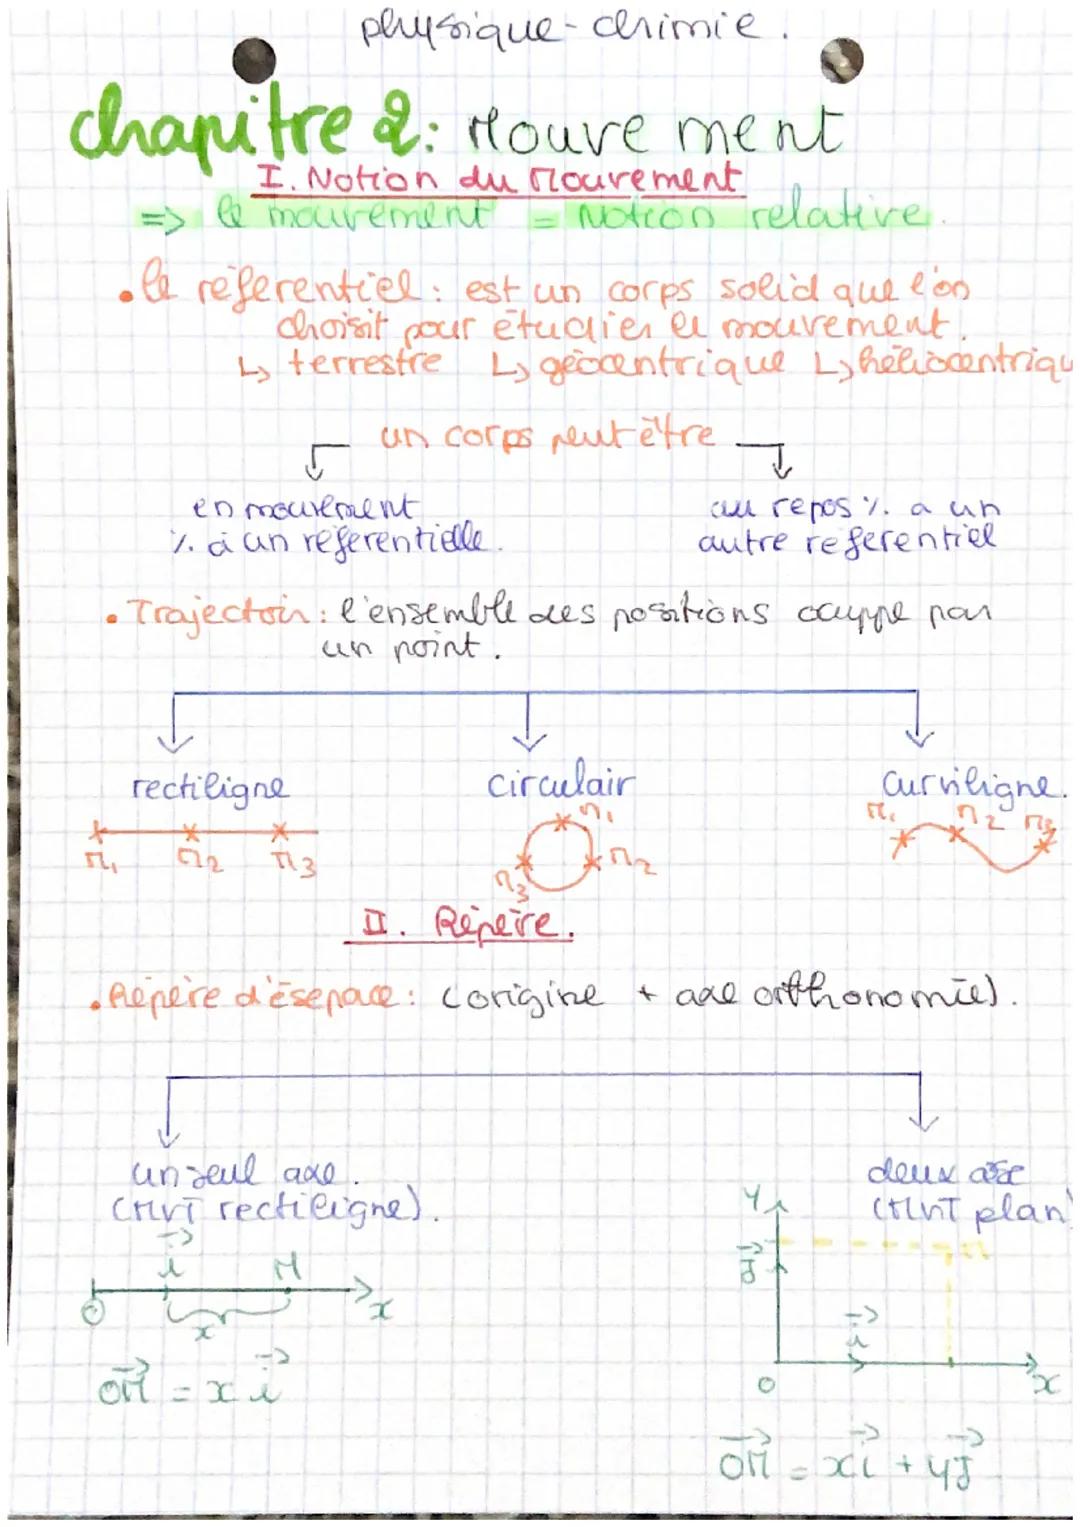 physique-chimie.
chapitre 2: Mouvement
I. Notion du Mouvement
=> le mouvement = Notion relative.
• le réferentiel : est un corps solid que l'on
choisit pour étudier le mouvement.
↳ terrestre ↳ géocentrique ↳ héliocentriqu
un corps peut être
en mouvement au repos %. a un
%. à un réferentielle. autre referentiel
• Trajectoir : l'ensemble des positions occuppe par
un point.
rectiligne circulair curviligne.
M1 M2 M3 M1 M2 M3 M1 M2 M3
II. Répère.
• Répère d'ésepace : (origine + axe orthonomié).
un seul axe. deux axe
(MvT rectiligne). (MvT plan)
i M x O x
y j M i x O
OM = x i
OM = xi + yj